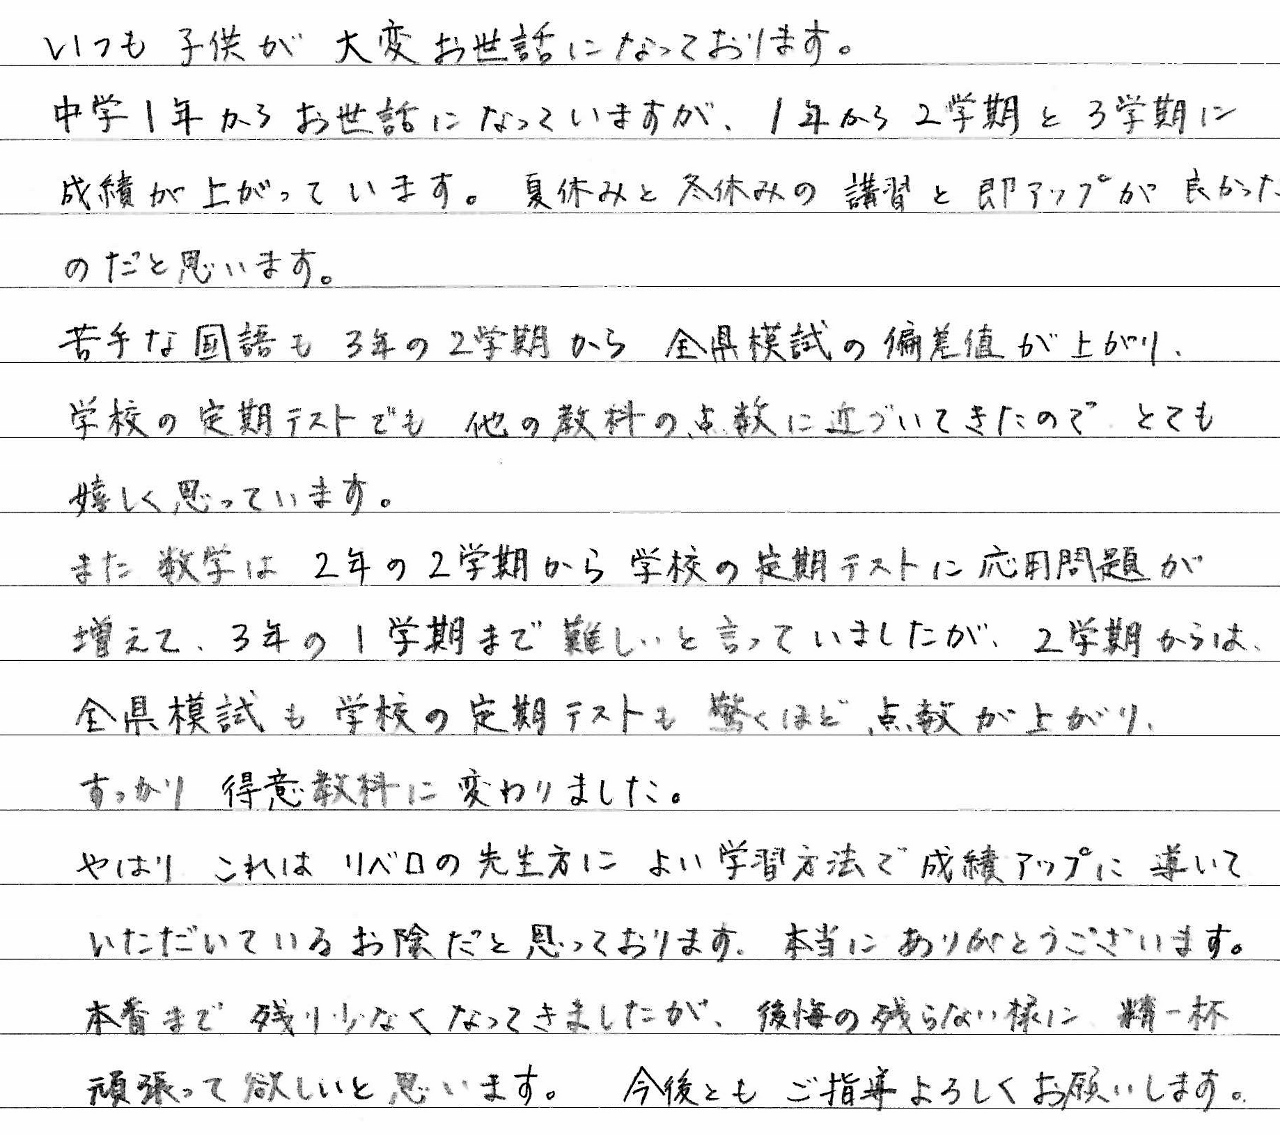 いつも子供が大変お世話になっております。
中学1年からお世話になっていますが、1年から2学期と3学期に
成績が上がっています。夏休みと冬休みの講習と即アップが良かった
のだと思います。
苦手な国語も3年の2学期から全県模試の偏差値が上がり、
学校の定期テストでも他の教科の点数に近づいてきたのでとても
嬉しく思っています。
また数学は2年の2学期から学校の定期テストに応用問題が
増えて、3年の1学期まで難しいと言っていましたが、2学期からは、
全県模試も学校の定期テストも驚くほど点数が上がり、
すっかり得意教科に変わりました。
やはりこれはリベロの先生方によい学習方法で成績アップに導いて
いただいているお陰だと思っております。本当にありがとうございます。
本番まで残り少なくなってきましたが、後悔の残らない様に精一杯
頑張って欲しいと思います。今後ともご指導よろしくお願いします。